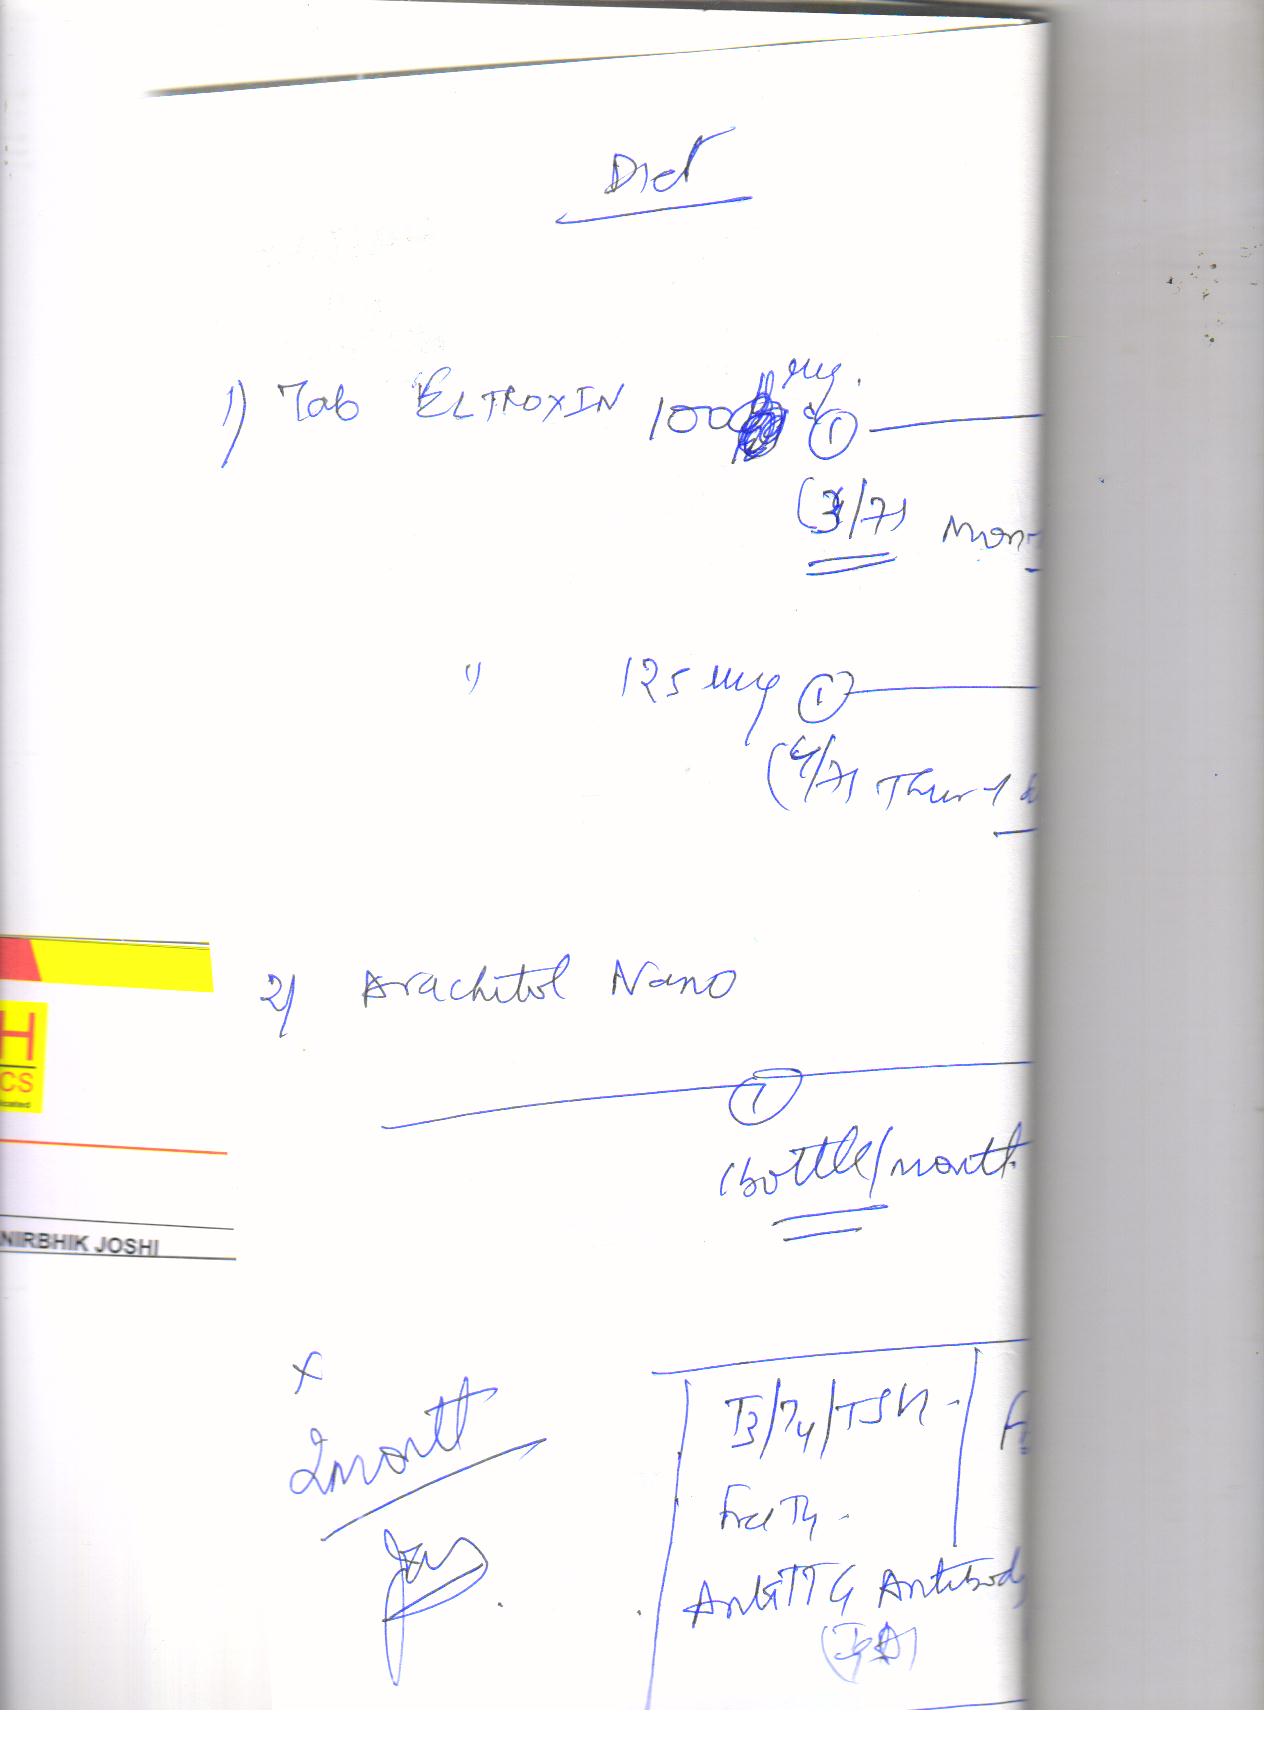 Diet
1) Tab ELTROXIN 100 mcg. ①
(3/7) Mon
" 125 mcg ①
(4/7) Thur
2) Arachitol Nano
①
1 bottle/month
H
CS
icated
NIRBHIK JOSHI
x
2 month
T3/T4/TSH
Free T4
Anti TTG Antibod
(IgA)